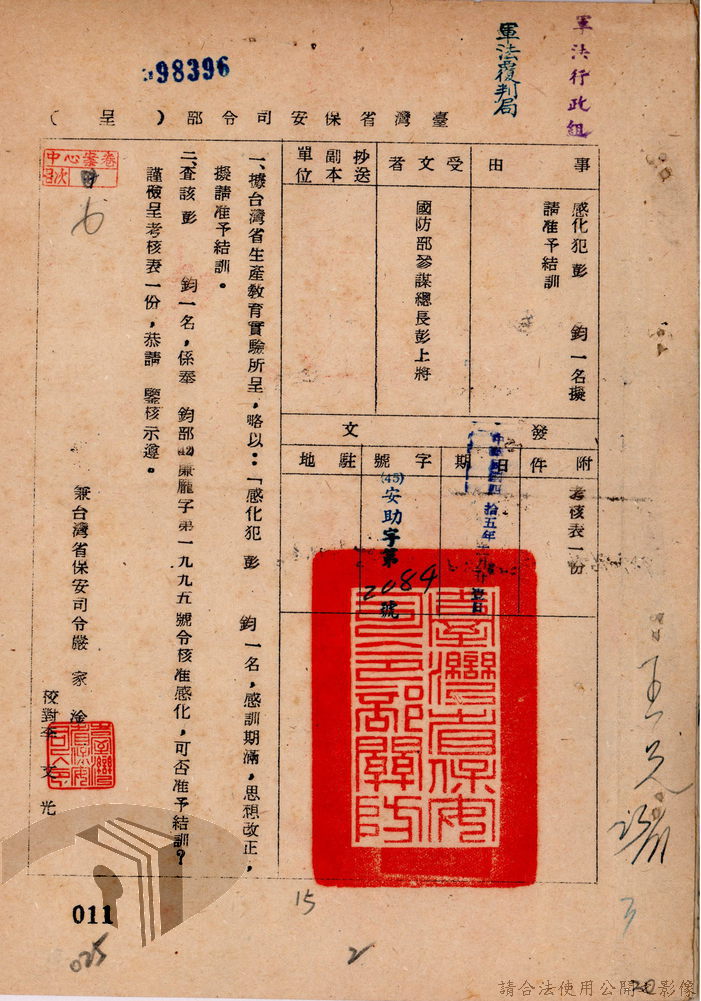 軍法行政組
軍法覆判局
398396
臺灣省保安司令部（呈）
事由
感化犯彭　鈞一名擬
請准予結訓
受文者
國防部參謀總長彭上將
抄送副本單位
發文
附件
考核表一份
日期
拾五年
字號
(45)安助字第2084號
駐地
臺灣省保安司令部關防
一、據台灣省生產教育實驗所呈，略以：「感化犯　彭　鈞一名，感訓期滿，思想改正，
擬請准予結訓。
二、查該彭　鈞一名，係奉　鈞部(42)廉龐字第一九九五號令核准感化，可否准予結訓？
謹檢呈考核表一份，恭請　鑒核示遵。
兼台灣省保安司令嚴家淦
校對李文光
中心檔卷
011
025
15
2
3
20
請合法使用公開之影像